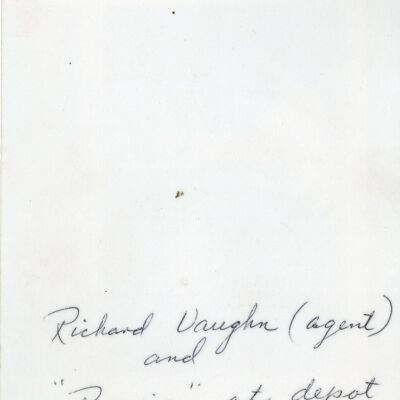 Richard Vaughn (agent)
and
at depot